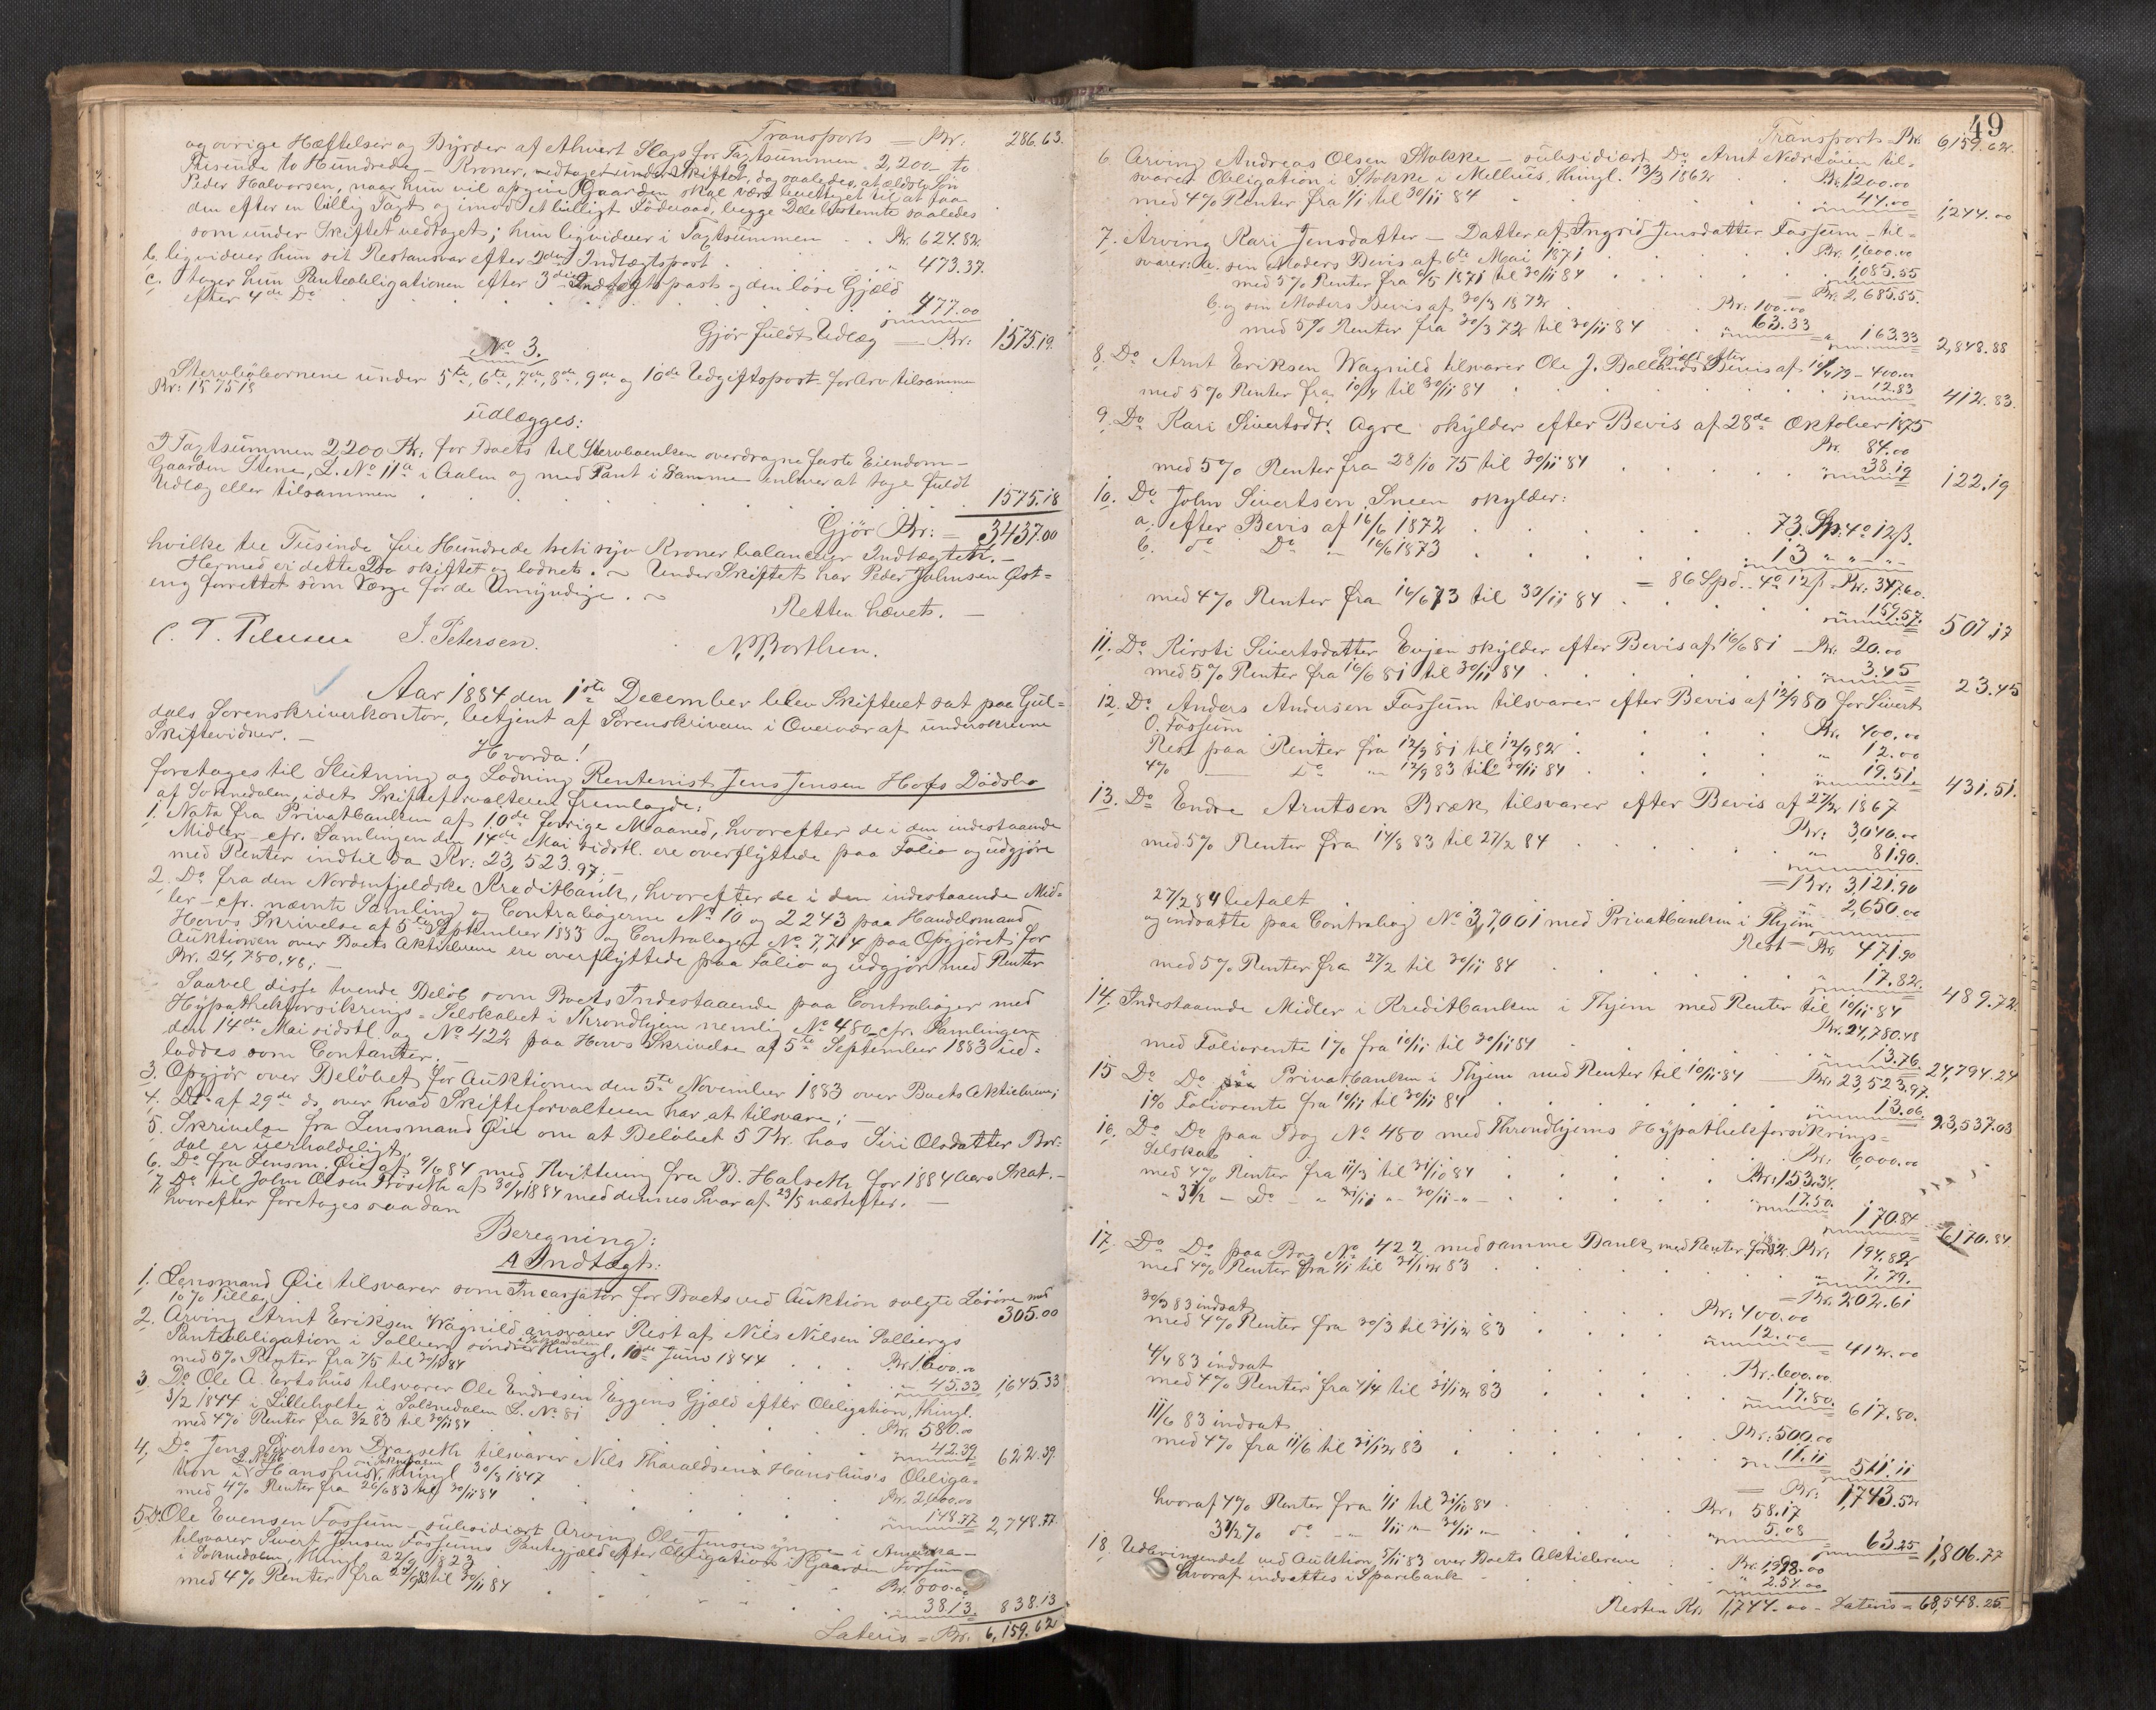 Transport = Kr. 286.63.
og øvrige Hæftelser og Byrder af Ahvert Slags for Taxtsummen 2,200 - to
Tusinde to Hundrede - Kroner, vedtaget under Skiftet, dog saaledes, at ældste Søn
Peder Halvorsen, naar hun vil afgive Gaarden skal være berettiget til at faa
den efter en billig Taxt og imod et billigt Föderaad, begge Dele bestemte saaledes
som under Skiftet vedtaget; hun ligviderer i Taxtsummen . . Kr. 624.82
b. ligviderer hun sit Restansvar efter 2den Indtægtspost . . . . " 473.37.
c. tager hun Panteobligationen efter 3die Indtægtspost og den löse Gjæld
efter 4de Do . . . . . 477.00
Gjør fuldt Udlæg = Kr: 1575.19.
No 3.
Stervbobörnene under 5te, 6te, 7de, 8de, 9de og 10de Udgiftspost for Arv tilsammen
Kr: 1575 18
udlægges:
I Taxtsummen 2,200 Kr: for Boets til Stervboenken overdragne faste Eiendom -
Gaarden Stene, L. No 11a i Aalen og med Pant i Samme enhver at tage fuldt
Udlæg eller tilsammen . . . . . 1575.18
Gjör Kr: = 3437.00
hvilke tre Tusinde fire Hundrede treti syv Kroner balancerer Indtægten. -
Hermed er dette Bo skiftet og lodnet. ~ Under Skiftet har Peder Johnsen Öst-
eng forrettet som Værge for de Umyndige. ~
Retten hævet. -
C. T. Petersen J. Petersen. N. Borthen.
Aar 1884 den 1ste December blev Skifteret sat paa Gul-
dals Sorenskriverkontor, betjent af Sorenskriveren i Overvær af underskrevne
Skiftevidner. -
Hvorda!
foretoges til Slutning og Lodning Rentenist Jens Jensen Hofs Dödsbo
af Soknedalen, idet Skifteforvalteren fremlagde:
1. Nota fra Privatbanken af 10de forrige Maaned, hvorefter de i den indestaaende
Midler - cfr. Samlingen den 14de Mai sidstl. ere overflyttede paa Folio og udgjöre
med Renter indtil da Kr: 23,523.97; -
2. Do fra den Nordenfjeldske Kreditbank, hvorefter de i den indestaaende Mid-
ler - cfr. nævnte Samling og Contraböger No 10 og 2243 paa Handelsmand
Hovs Skrivelse af 5te September 1883 og Contraboger No 7,714 paa Opgjöret for
Auktionen over Boets Aktiebreve ere overflyttede paa Folio og udgjör med Renter
Kr. 24,780,48; -
Saavel disse tvende Belöb som Boets Indestaaende paa Contraböger med
Hypothekforsikrings-Selskabet i Throndhjem nemlig No 480 cfr. Samlingen
den 14de Mai sidstl. og No 422 paa Hovs Skrivelse af 5te September 1883 ud-
loddes som Contanter. -
3. Opgjör over Belöbet for Auktionen den 5te November 1883 over Boets Aktiebreve;
4. Do af 29de ds over hvad Skifteforvalteren har at tilsvare; -
5. Skrivelse fra Lensmand Öie om at Belöbet 5 Kr. hos Siri Olsdatter Bor-
dal er uerholdeligt.
6. Do fra Lensm. Öie af 9/6 84 med Kvittering fra B. Halseth for 1884 Aars Skat. -
7. Do til John Olsen Fröseth af 30/4 1884 med dennes Svar af 23/5 næstefter. -
hvorefter foretoges saadan
Beregning:
A Indtægt:
1. Lensmand Öie tilsvarer som Incassator for Boets ved Auktion solgte Lösöre med
10% Tillæg 305.00
2. Arving Arnt Eriksen Wagnild ansvarer Rest af Nils Nilsen Solbergs
Panteobligation i Solberg söndre i Soknedalen thingl. 10de Juni 1844 . . . Kr. 1600.00
med 5% Renter fra 7/5 til 30/11 84 " 45.33 1,645.33
3. Do Ole A. Ertshus tilsvarer Ole Endresen Eggens Gjæld efter Obligation, thingl.
3/2 1844 i Lilleholte i Soknedalen L. No 81 . . . Kr. 580.00
med 4% Renter fra 3/2 83 til 30/11 84 42.39 622.39.
4. Do Jens Sivertsen Dragseth tilsvarer Nils Tharaldsens Hanshus's Obliga-
tion i Hanshus L. No 96 i Soknedalen, thingl 30/8 1847 . . . Kr. 2,600.00
med 4% Renter fra 26/6 83 til 30/11 84 148.77 2,748.77.
5. Do Ole Evensen Fossum - subsidiært Arving Ole Jensen yngre i Amerika -
tilsvarer Sivert Jensen Fossums Pantegjæld efter Obligation i Gaarden Fossum
i Soknedalen, thingl. 22/9 1823 . . . Kr. 800.00
med 4% Renter fra 22/9 83 til 30/11 84 38.13. 838.13
Lateris = Kr. 6,159.62
49
Transport Kr. 6159.62.
6. Arving Andreas Olsen Stokke - subsidiært Do Arnt Nedreöien til-
svarer Obligation i Stokke i Melhus, thingl. 13/3 1862 . . Kr. 1200.00
med 4% Renter fra 1/1 til 30/11 84 . . . 44.00 1,244.00
7. Arving Kari Jensdatter - Datter af Ingrid Jensdatter Fossum - til-
svarer: a. sin Moders Bevis af 6te Mai 1871 . . . Kr. 1,600.00
med 5% Renter fra 6/5 1871 til 30/11 84 . . . 1,085.55
= Kr. 2,685.55.
b. og sin Moders Bevis af 30/3 1872 . . Kr: 100.00
med 5% Renter fra 30/3 72 til 30/11 84 63.33 = 163.33 2,848.88
8. Do Arnt Eriksen Wagnild tilsvarer Ole J. Bollands Gjæld efter Bevis af 10/4 79 - 400.00
med 5% Renter fra 10/4 til 30/11 84 . . . 12.83 412.83.
9. Do Kari Sivertsdtr. Agre skylder efter Bevis af 28de Oktober 1875
Kr. 84.00
med 5% Renter fra 28/10 75 til 30/11 84 . . . 38.19 122.19
10. Do John Sivertsen Sneen skylder:
a. efter Bevis af 16/6 1872 . . . 73 Sp. 4 o 12 ß.
b. do Do - 16/6 1873 . . . 13 " " -
= 86 Spd. 4 o 12 ß - Kr: 347.60.
med 4% Renter fra 16/6 73 til 30/11 84 . . . 159.57. 507.17
11. Do Kirsti Sivertsdatter Evjen skylder efter Bevis af 16/6 81 - Kr. 20.00
med 5% Renter fra 16/6 81 til 30/11 84 . . . 3.45 23.45
12. Do Anders Andersen Fossum tilsvarer efter Bevis af 12/9 80 for Sivert
O. Fossum . . . Kr. 400.00
Rest paa Renter fra 12/9 81 til 12/9 82 . . . " 12.00
4% - Do " 12/9 83 til 30/11 84 . . . 19.51 431.51.
13. Do Endre Arntsen Bræk tilsvarer efter Bevis af 27/2 1867
Kr: 3,040.00
med 5% Renter fra 14/8 83 til 27/2 84 . . . " 81.90.
= Kr: 3,121.90
27/2 84 betalt . . . " 2,650.00
og indsatte paa Contrabog No 37,001 med Privatbanken i Thjem
Rest = Kr. 471.90
med 5% Renter fra 27/2 til 30/11 84 . . . 17.82. 489.72.
14. Indestaaende Midler i Kreditbanken i Thjem med Renter til 10/11 84
Kr. 24,780.48
med Foliorente 1% fra 10/11 til 30/11 84 . . . 13.76. 24,794.24
15 Do Do i Privatbanken i Thjem med Renter til 10/11 84 Kr. 23,523.97.
1% Foliorente fra 10/11 til 30/11 84 . . . 13.06. 23,537.03
16. Do Do paa Bog No 480 med Throndhjems Hypothekforsikrings-
Selskab . . . Kr: 6,000.00
med 4% Renter fra 11/3 til 31/10 84 . . . Kr: 153.34.
" 3 1/2 - Do - " 31/10 " 30/11 " - . . . 17.50. 170.84 6170.84
17. Do Do paa Bog No 422 med samme Bank med Renter for 82 Kr. 194.82
med 4% Renter fra 1/1 til 31/12 83 . . . 7.79.
= Kr. 202.61
30/3 83 indsat . . . Kr: 400.00
med 4% Renter fra 30/3 til 31/12 83 . . . 12.00 = 412.00
4/4 83 indsat . . . Kr: 600.00.
med 4% Renter fra 4/4 til 31/12 83 . . . 17.80. 617.80.
11/6 83 indsat . . . Kr: 500.00
med 4% fra 11/6 til 31/12 83 . . . 11.11 511.11
= Kr: 1,743.52
hvoraf 4% Renter fra 1/1 til 31/10 84 . . . Kr. 58.17
3 1/2% do - 1/11 " 30/11 " . . . 5.08 63.25 1,806.77
18. Udbringendet ved Auktion 5/11 83 over Boets Aktiebreve . . Kr. 1,998.00
hvoraf indsattes i Sparebank . . . 254.00
Resten Kr. 1,744.00 - Lateris = 68,548.25